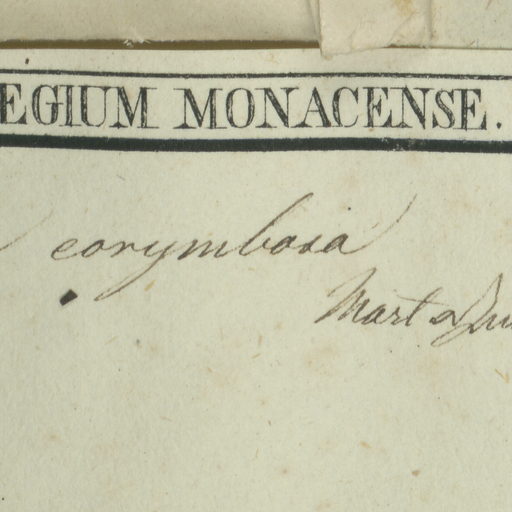 EGIUM MONACENSE.
corymbosa
Mart &